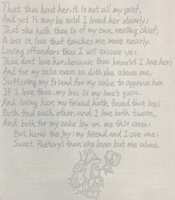 That thou hast her it is not all my grief,
And yet it may be said I loved her dearly;
That she hath thee is of my own wailing chief,
A loss in love that touches me more nearly.
Loving offenders thus I will excuse ye:
Thou dost love her, because thou know'st I love her;
And for my sake even so doth she abuse me,
Suffering my friend for my sake to approve her.
If I lose thee, my loss is my love's gain,
And losing her, my friend hath found that loss;
Both find each other, and I lose both twain,
And both for my sake lay on me this cross:
But here's the joy; my friend and I are one;
Sweet flattery! then she loves but me alone.